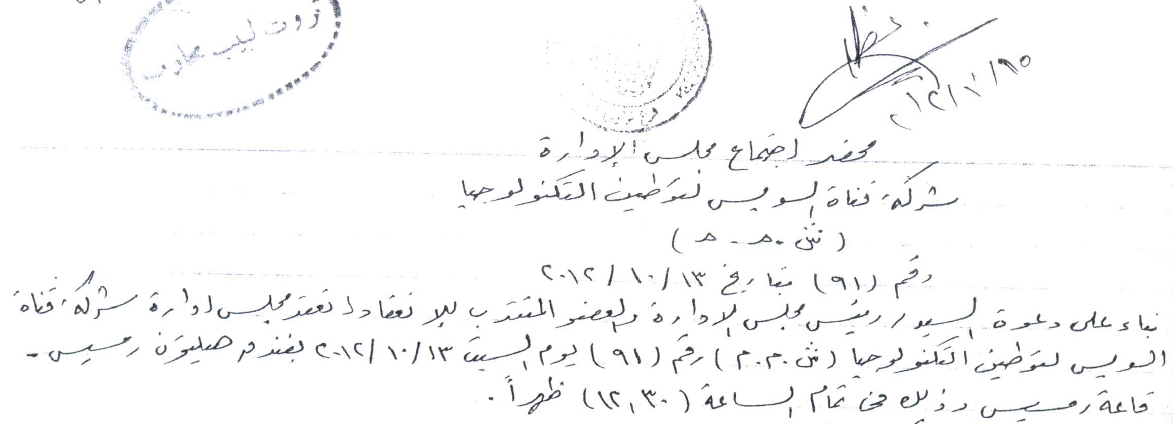 ثروت لبيب
نظر
٢٠١٢/١٠/٢٥
محضر اجتماع مجلس الإدارة
شركة قناة السويس لتوطين التكنولوجيا
(ش.م.م)
رقم (٩١) بتاريخ ٢٠١٢/١٠/١٣
بناء على دعوة السيد / رئيس مجلس الإدارة والعضو المنتدب للانعقاد انعقد مجلس ادارة شركة قناة
السويس لتوطين التكنولوجيا (ش.م.م) رقم (٩١) يوم السبت ٢٠١٢/١٠/١٣ بفندق هيلتون رمسيس -
قاعة رمسيس وذلك فى تمام الساعة (١٢,٣٠) ظهراً.